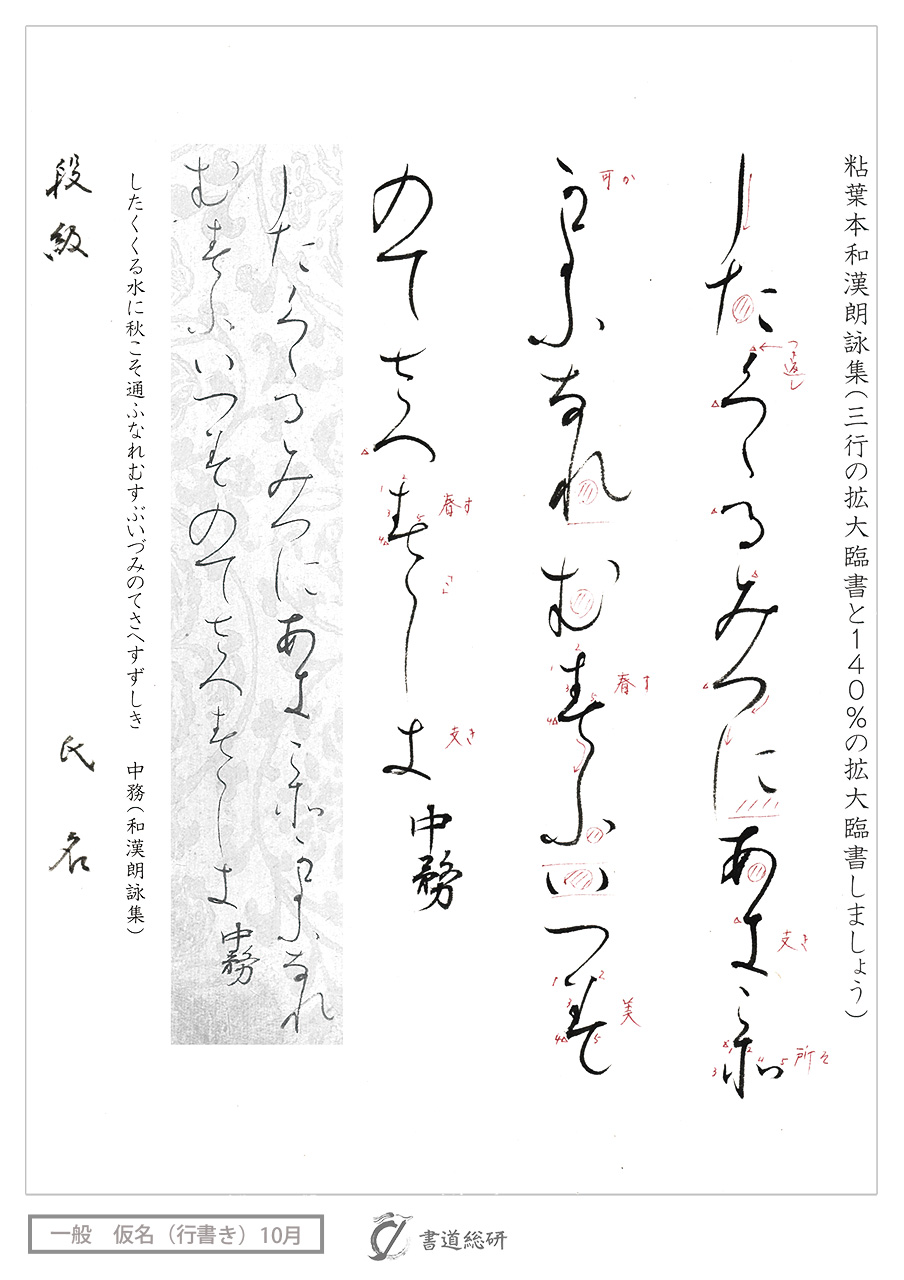 粘葉本和漢朗詠集(三行の拡大臨書と140%の拡大臨書しましょう)
したくくるみつにあきこそ
つき返し
支き
所そ
かよふなれむすふいつみ
可か
春す
美
のてさへすゝしき 中務
春す
支き
したくくるみつにあきこそかよふなれ
むすふいつみのてさへすゝしき 中務
したくくる水に秋こそ通ふなれむすぶいづみのてさへすずしき 中務(和漢朗詠集)
段級 氏名
一般 仮名(行書き)10月
書道総研